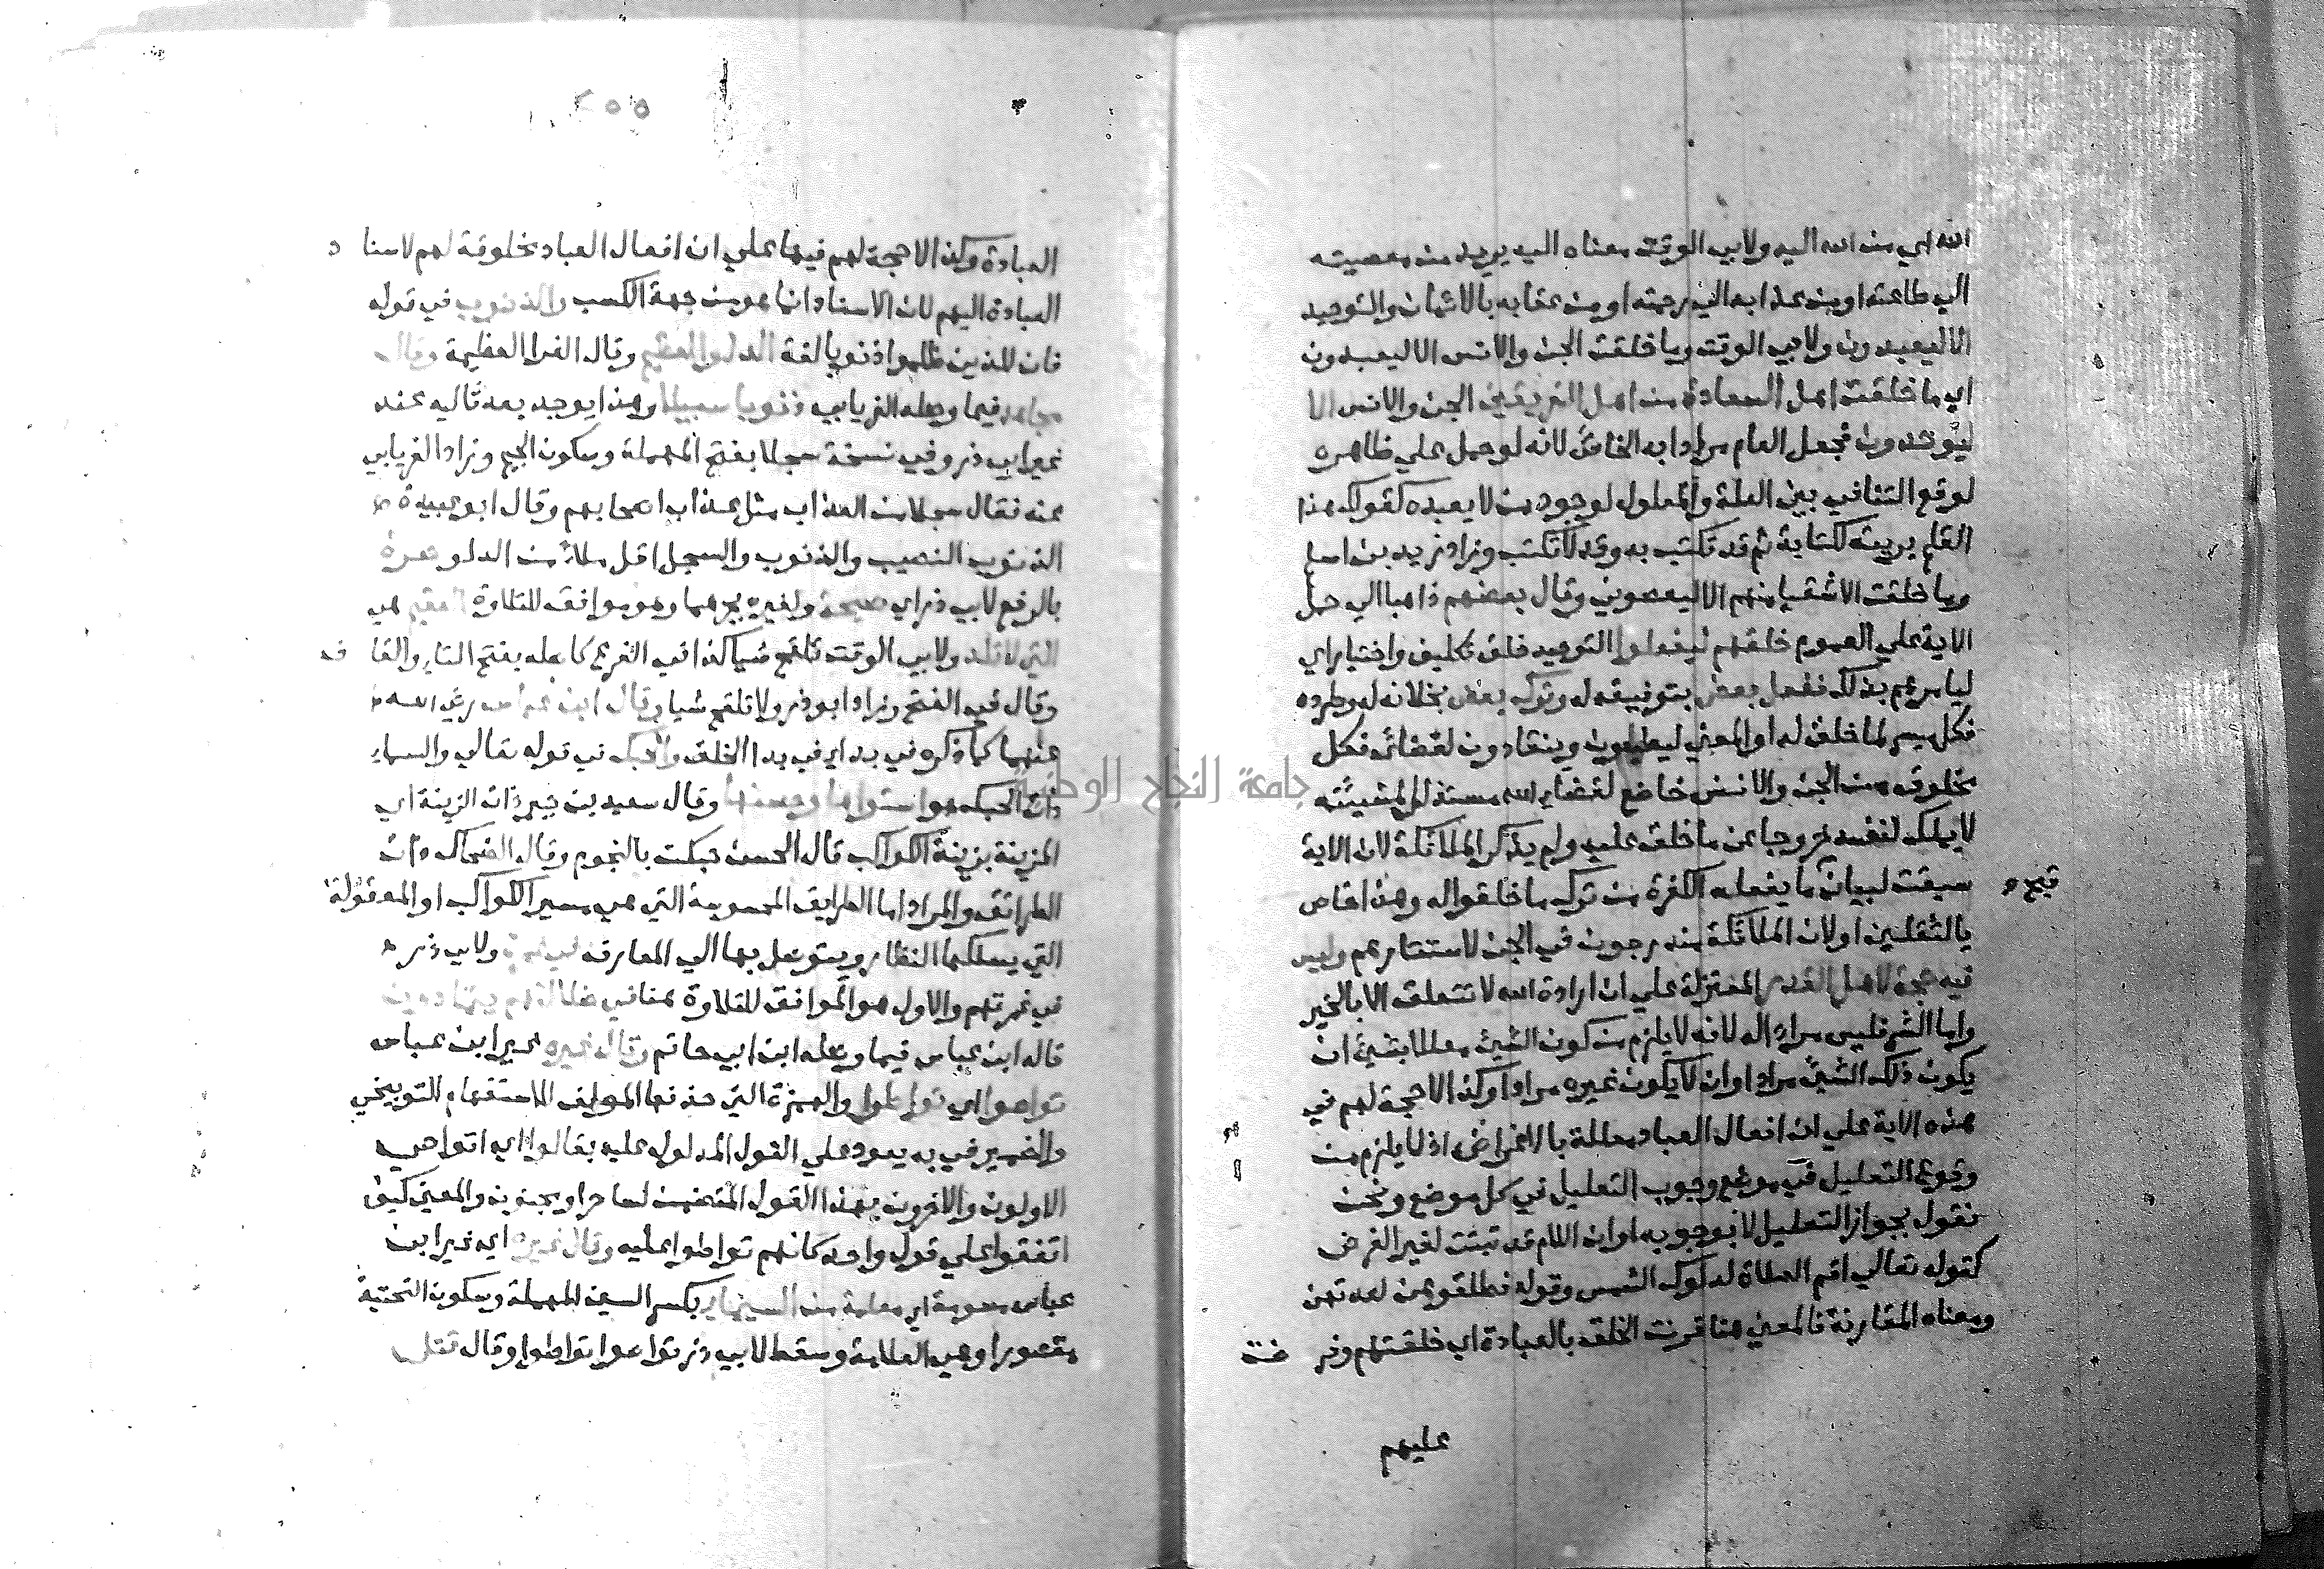 الله اي من الله اليه ولابي الوقت معناه اليه يريد من معصيته
الي طاعته او من عذابه الي رحمته او من عقابه بالايمان والتوحيد
الا ليعبدون ولابي الوقت وما خلقت الجن والانس الا ليعبدون
اي ما خلقت اهل السعادة من اهل الفريقين الجن والانس الا
ليوحدون فجعل العام مرادا به الخاص لانه لو حمل علي ظاهره
لوقع التنافي بين العلة والمعلول لوجود من لا يعبده كقولك هذا
القلم بريته للكتابة ثم قد تكتب به وقد لا تكتب وزاد زيد بن اسلم
وما خلقت الاشقيا منهم الا ليعصوني وقال بعضهم ذاهبا الي حمل
الاية علي العموم خلقهم ليفعلوا التوحيد خلق تكليف واختبار اي
ليامرهم بذلك ففعل بعض بتوفيقه له وترك بعض بخذلانه له وطرده
فكل ميسر لما خلق له او المعني ليطيعون وينقادون لقضائي فكل
مخلوق من الجن والانس خاضع لقضاء الله مستذل لمشيئته
لا يملك لنفسه خروجا عن ما خلق عليه ولم يذكر الملائكة لان الاية
سيقت لبيان ما يفعله الكفرة من ترك ما خلقوا له وهذا خاص
قبح
بالثقلين او لان الملائكة مندرجون في الجن لاستتارهم وليس
فيه حجة لاهل القدر المعتزلة علي ان ارادة الله لا تتعلق الا بالخير
واما الشر فليس مرادا له لانه لا يلزم من كون الشيئ معللا بشيئ ان
يكون ذلك الشيئ مرادا وان لا يكون غيره مرادا وكذا لا حجة لهم في
هذه الاية علي ان افعال العباد معللة بالاغراض اذ لا يلزم من
وقوع التعليل في موضع وجوب التعليل في كل موضع ونحن
نقول بجواز التعليل لا بوجوبه او ان اللام قد تبتت لغير الغرض
كقوله تعالي اقم الصلاة لدلوك الشمس وقوله فطلقوهن لعدتهن
ومعناه المقارنة فالمعني هنا قرنت الخلق بالعبادة اي خلقتهم وفرضت
عليهم
٢٥٥
العبادة وكذا لا حجة لهم فيها علي ان افعال العباد مخلوقة لهم لاسناد
العبادة اليهم لان الاسناد انما هو من جهة الكسب والذنوب في قوله
فان للذين ظلموا ذنوبا لغة الدلو العظيم وقال الفرا العظيمة وقال
مجاهد فيما وصله الفريابي ذنوبا سبيلا وهذا يوجد بعد تاليه عند
غير ابي ذر وفي نسخة سجلا بفتح المهملة وسكون الجيم وزاد الفريابي
عنه فقال سجلا من العذاب مثل عذاب اصحابهم وقال ابو عبيدة
الذنوب النصيب والذنوب والسجل اقل ملأ من الدلو صرة
بالرفع لابي ذر اي صيحة ولغيره بجرهما وهو موافق للتلاوة العقيم هي
التي لا تلد ولابي الوقت تلقح شيا كذا في الفرع كاصله بفتح التاء والقاف
وقال في الفتح وزاد ابو ذر ولا تلقح شيا وقال ابن عباس رضي الله
عنهما كما ذكره في بد اي في بدا الخلق والحبك في قوله تعالي والسماء
ذات الحبك هو استواوها وحسنها وقال سعيد بن جبير ذات الزينة اي
المزينة بزينة الكواكب قال الحسن حبكت بالنجوم وقال الضحاك ذات
الطرائق والمراد اما الطرايق المحسوسة التي هي مسير الكواكب او المعقولة
التي يسلكها النظار ويتوصل بها الي المعارف في غمرة ولابي ذر
في غمرتهم والاول هو الموافق للتلاوة هنا في ضلالتهم يتمادون
قاله ابن عباس فيما وصله ابن ابي حاتم وقال غيره غير ابن عباس
تواصوا اي تواطوا والهمزة التي حذفها المولف للاستفهام التوبيخي
والضمير في به يعود علي القول المدلول عليه بقالوا اي اتواصي
الاولون والاخرون بهذا القول المتضمن لساحر او مجنون والمعني كيف
اتفقوا علي قول واحد كانهم تواطوا عليه وقال غيره اي غير ابن
عباس مسومة اي معلمة من السيماء بكسر السين المهملة وسكون التحتية
مقصورا وهي العلامة وسقط لابي ذر تواصوا تواطوا وقال قتل
جامعة النجاح الوطنية